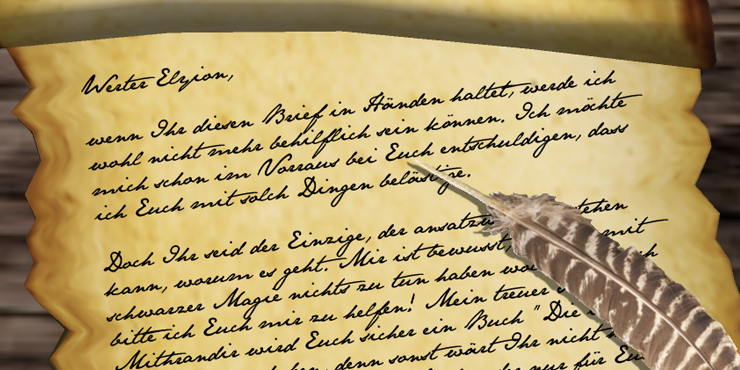 Werter Elzion,
wenn Ihr diesen Brief in Händen haltet, werde ich
wohl nicht mehr behilflich sein können. Ich möchte
mich schon im Vorraus bei Euch entschuldigen, dass
ich Euch mit solch Dingen belästige.
Doch Ihr seid der Einzige, der
kann, worum es geht. Mir ist bewusst, mit
schwarzer Magie nichts zu tun haben
bitte ich Euch mir zu helfen! Mein treuer
Mithrandir wird Euch sicher ein Buch "Die
denn sonst wärt Ihr nicht
nur für